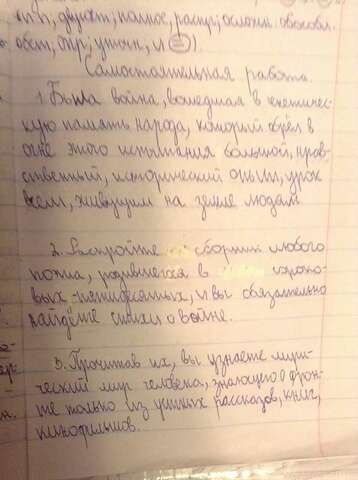 Самостоятельная работа.
1. Была война, вошедшая в генетичес-
кую память народа, который обрёл в
огне этого испытания большой, нрав-
ственный, исторический опыт, урок
всем, живущим на земле людям.
2. Раскройте сборник любого
поэта, родившегося в сороко-
вых-пятидесятых, и вы обязательно
найдёте стихи о войне.
3. Прочитав их, вы узнаете лири-
ческий мир человека, знающего о фрон-
те только из устных рассказов, книг,
кинофильмов.